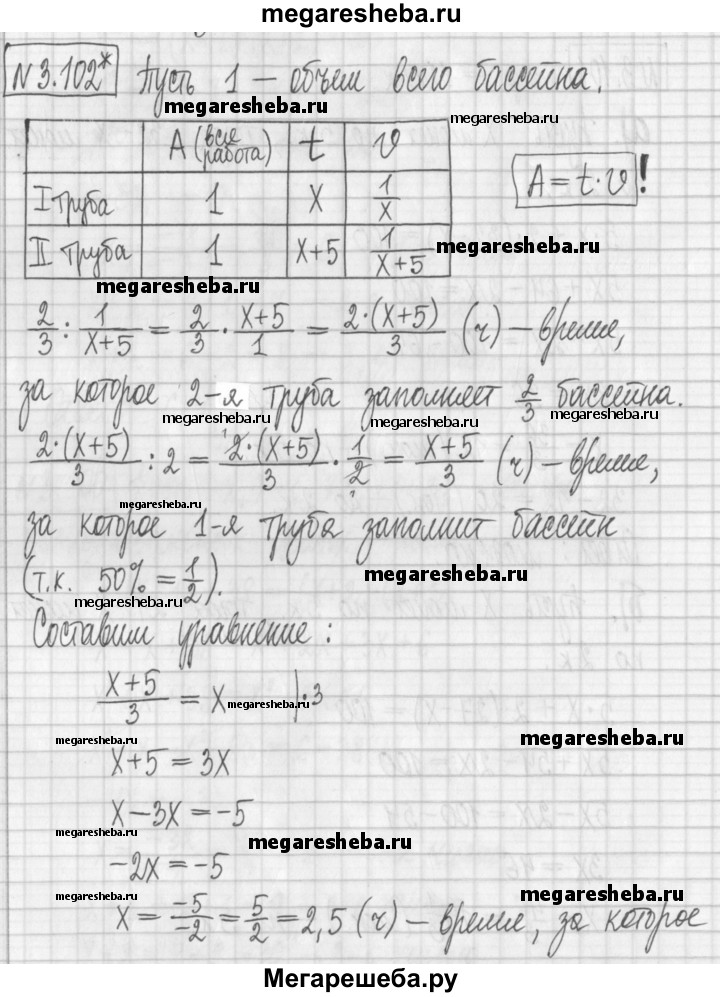 megaresheba.ru
N 3.102* Пусть 1 – объём всего бассейна.
megaresheba.ru
megaresheba.ru
A (вся работа) t v
I труба 1 x 1/x
A = t·v !
II труба 1 x+5 1/(x+5)
megaresheba.ru
megaresheba.ru
2/3 : 1/(x+5) = 2/3 · (x+5)/1 = 2·(x+5)/3 (ч) – время,
за которое 2-я труба заполняет 2/3 бассейна.
megaresheba.ru megaresheba.ru megaresheba.ru
2·(x+5)/3 : 2 = 2·(x+5)/3 · 1/2 = (x+5)/3 (ч) – время,
megaresheba.ru
за которое 1-я труба заполнит бассейн
(т.к. 50% = 1/2).
megaresheba.ru
megaresheba.ru
Составим уравнение:
(x+5)/3 = x |·3
megaresheba.ru
megaresheba.ru megaresheba.ru
x+5 = 3x
x–3x = –5
megaresheba.ru
megaresheba.ru
–2x = –5
megaresheba.ru megaresheba.ru
x = –5/–2 = 5/2 = 2,5 (ч) – время, за которое
Мегарешеба.ру